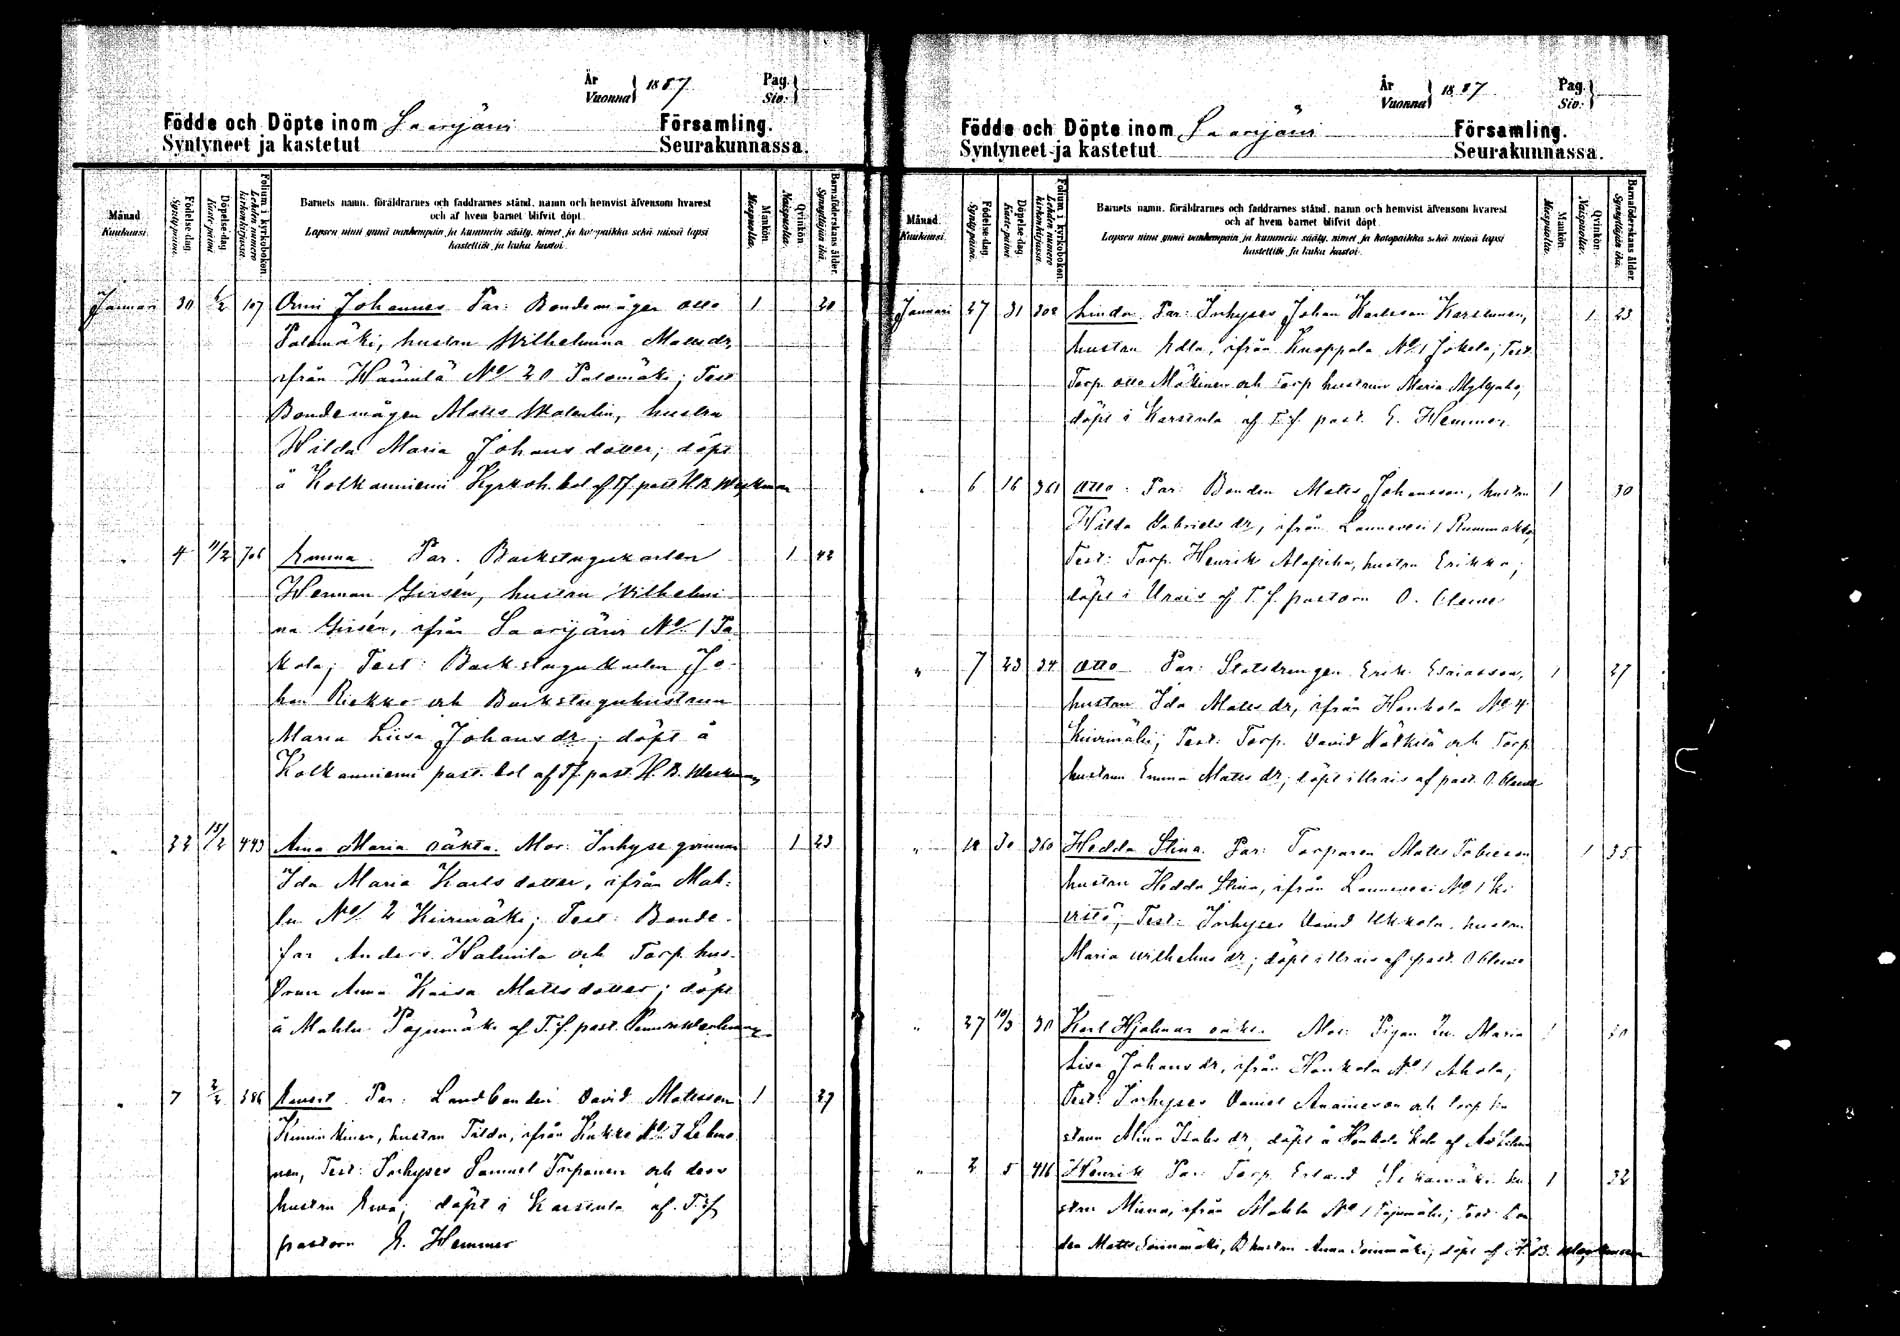 År
Vuonna } 1887
Pag.
Siv. }
Födde och Döpte inom Saarijärvi Församling.
Syntyneet ja kastetut Seurakunnassa.
Månad Kuukausi.
Födelse-dag. Syntypäivä.
Döpelse-dag. Kaste-päivä.
Folium i kyrkoboken. Lehden numero kirkonkirjassa.
Barnets namn, föräldrarnes och faddrarnes stånd, namn och hemvist äfvensom hvarest
och af hvem barnet blifvit döpt.
Lapsen nimi ynnä vanhempain ja kummein sääty, nimet ja kotopaikka sekä missä lapsi
kastettiin ja kuka kastoi.
Mankön. Miespuolia.
Qvinkön. Naispuolia.
Barnaföderskans ålder. Synnyttäjän ikä.
Januari 30 6/2 107 Onni Johannes Par: Bondemågen Otto 1 20
Palomäki, hustru Wilhelmina Mattsdr,
ifrån Hämilä No 20 Palomäki; Test
Bondemågen Matts Valentin, hustru
Hilda Maria Johansdotter; döpt
å Kolkanniemi Kyrkoh. bol af Tf past H. B. Weckman
" 4 11/2 706 Emma. Par. Backstugukarlen 1 42
Herman Girsén, hustru Wilhelmi
na Girsén, ifrån Saarijärvi No 1 Ta
kola; Test: Backstugukarlen Jo
han Riekko och Backstuguhustrun
Maria Liisa Johansdr; döpt å
Kolkanniemi past. bol af Tf past. H. B. Weckman
" 22 15/2 443 Aina Maria oäkta. Mor: Inhyseqvinnan 1 23
Ida Maria Karlsdotter, ifrån Mah-
lu No 2 Kivimäki; Test: Bonde-
far Anders Halmila och Torp. hus-
trun Anna Kaisa Mattsdotter; döpt
å Mahlu Pajumäki af T. f. past.
" 7 2/2 386 Ewert Par: Landbonden David Matsson 1 29
hustru Tilda, ifrån Kukko No 7 Lehmo
nen, Test: Inhyses Samuel Tarpanen och dess
hustru Ewa; döpt i Karstula af T. f
pastorn E. Hemmer
År
Vuonna } 1887
Pag.
Siv. }
Födde och Döpte inom Saarijärvi Församling.
Syntyneet ja kastetut Seurakunnassa.
Månad Kuukausi.
Födelse-dag. Syntypäivä.
Döpelse-dag. Kaste-päivä.
Folium i kyrkoboken. Lehden numero kirkonkirjassa.
Barnets namn, föräldrarnes och faddrarnes stånd, namn och hemvist äfvensom hvarest
och af hvem barnet blifvit döpt.
Lapsen nimi ynnä vanhempain ja kummein sääty, nimet ja kotopaikka sekä missä lapsi
kastettiin ja kuka kastoi.
Mankön. Miespuolia.
Qvinkön. Naispuolia.
Barnaföderskans ålder. Synnyttäjän ikä.
Januari 27 31 308 Linda. Par: Inhyses Johan Karlsson Karelmen, 1 23
hustru Edla, ifrån Knappala No 1 Jokela; Test
Torp. Otto Mäkinen och Torp hustrun Maria Myllyaho,
döpt i Karstula af T. f. past. E. Hemmer
" 6 16 361 Otto. Par: Bonden Matts Johansson, hustru 1 30
Hilda Gabrielsdr, ifrån Lannevesi 1 Rummakko,
Test: Torp. Henrik Alapiha, hustru Erikka;
döpt i Urais af T. f. pastorn O. Cleve
" 7 23 34 Otto Par: Statsdrengen Erik Esaiasson, 1 27
hustrun Ida Mattsdr, ifrån Honkola No 4
Kivimäki; Test: Torp. David Kätkilä och Torp.
hustrun Emma Mattsdr; döpt i Urais af past. O. Cleve
" 12 30 360 Hedda Stina. Par: Torparen Matts Tobiesson 1 35
hustru Hedda Stina, ifrån Lannevesi No 1 Ki
vistö; Test: Inhyses David Ukkola, hustru
Maria Wilhelmsdr; döpt i Urais af past. O Cleve
" 27 10/3 30 Karl Hjalmar oäkt. Mor: Pigan In. Maria 1 20
Lisa Johansdr, ifrån Honkola No 1 Ahola;
Test: Inhyses Daniel Ananiasson och Torp hu
strun Alina Isaksdr, döpt å Honkola
" 2 5 416 Henrik Par: Torp. Erland Sikamäki hu 1 32
stru Miina, ifrån Mahlu No 1 Pajumäki; Test: Bon
den Matts Soinimäki, B hustru Anna Soinimäki; döpt af H. B. Weckman